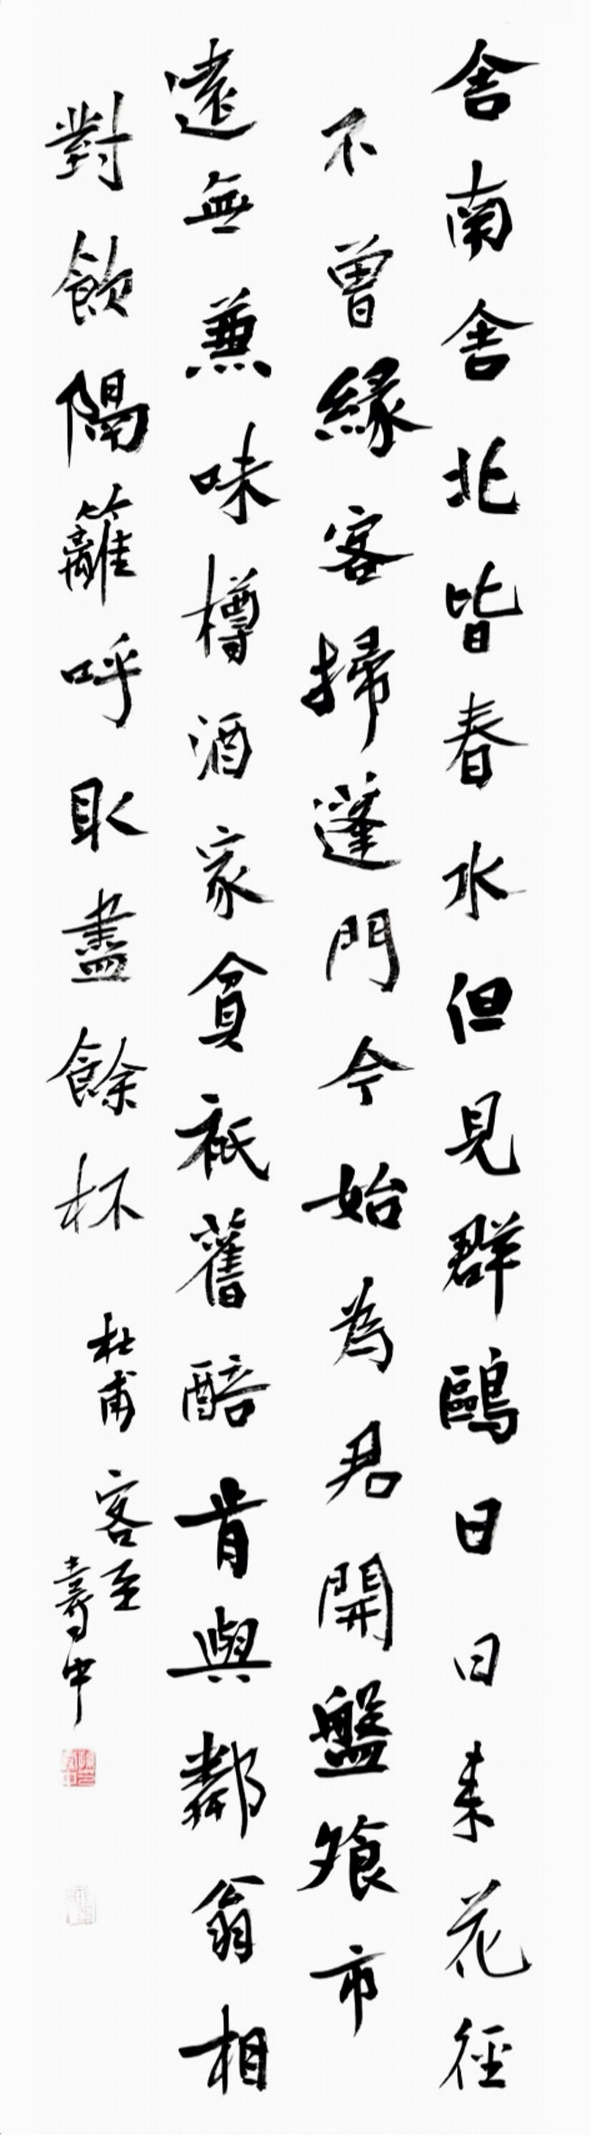 舍南舍北皆春水但見群鷗日日來花徑
不曾緣客掃蓬門今始為君開盤飧市
遠無兼味樽酒家貧衹舊醅肯與鄰翁相
對飲隔籬呼取盡餘杯
杜甫客至
壽中